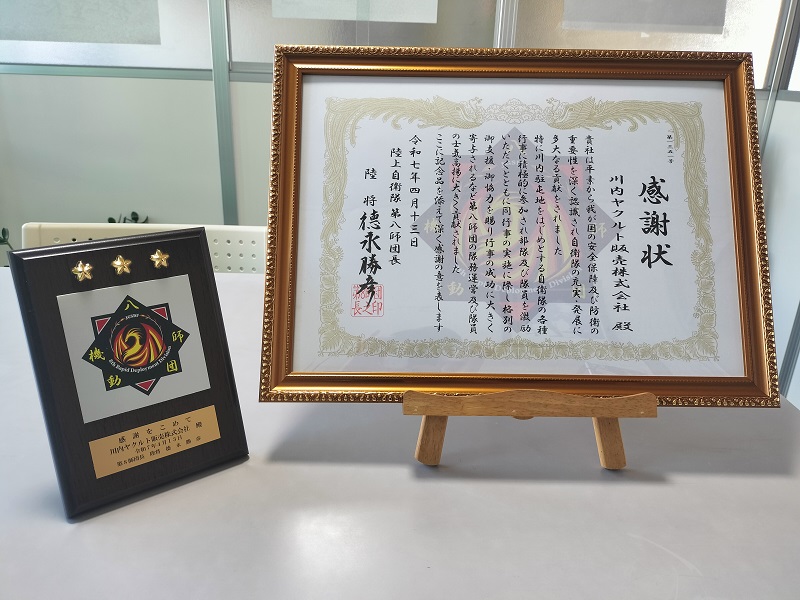 感謝状
川内ヤクルト販売株式会社 殿
貴社は平素から我が国の安全保障及び防衛の
重要性を深く認識され自衛隊の充実発展に
多大なる貢献をされました
特に川内駐屯地をはじめとする自衛隊の各種
行事に積極的に参加され部隊及び隊員を激励
いただくとともに同行事の実施に際し格別の
御支援・御協力を賜り行事の成功に大きく
寄与されるなど第八師団の隊務運営及び隊員
の士気高揚に大きく貢献されました
ここに記念品を添えて深く感謝の意を表します
令和七年四月十三日
陸上自衛隊 第八師団長
陸将 德永勝彦
八
機 師
動 団
8th Rapid Deployment Division
感謝をこめて
川内ヤクルト販売株式会社 殿
令和7年4月13日
第8師団長 陸将 德永勝彦